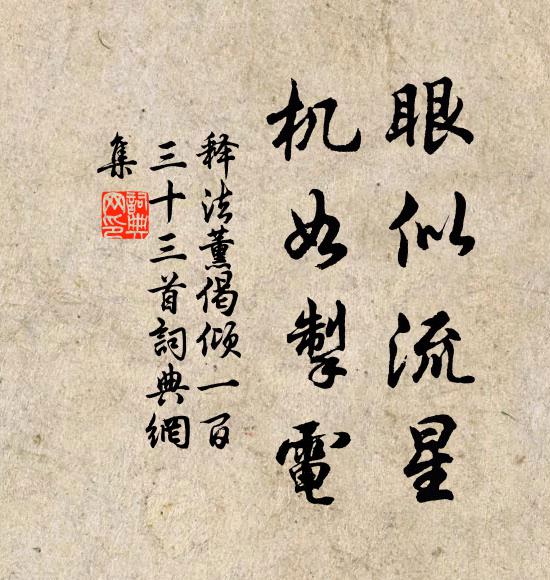 眼似流星
机如掣電
释法薰偈倾一百
三十三首詞典網
集
詞典
网印